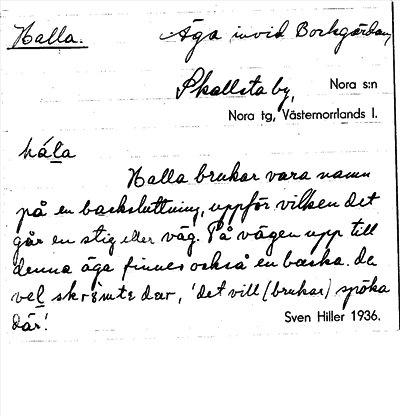 Halla.
Äga invid Bockgården,
Skallsta by, Nora s:n
Nora tg, Västernorrlands l.
hála
Halla brukar vara namn
på en backsluttning, uppför vilken det
går en stig eller väg. På vägen upp till
denna äga finnes också en backa. De
vel skrömte där, 'det vill (brukar) spöka
där!
Sven Hiller 1936.